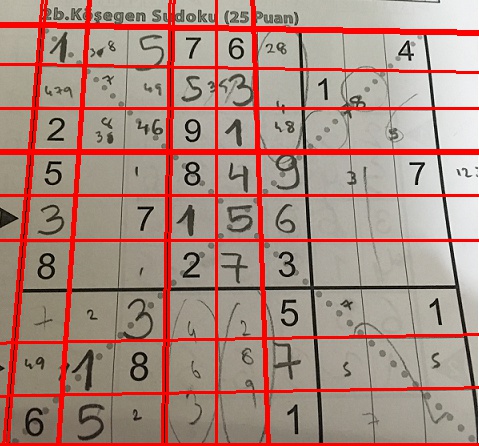 2b.Köşegen Sudoku (25 Puan)
1 8 5 7 6 28 4
479 7 49 5 3 1
2 46 9 1 48 8 5
5 1 8 4 9 31 7 12
3 7 1 5 6
8 2 7 3
7 2 3 4 2 5 1
49 1 8 6 8 7 5 5
6 5 2 3 9 1 7